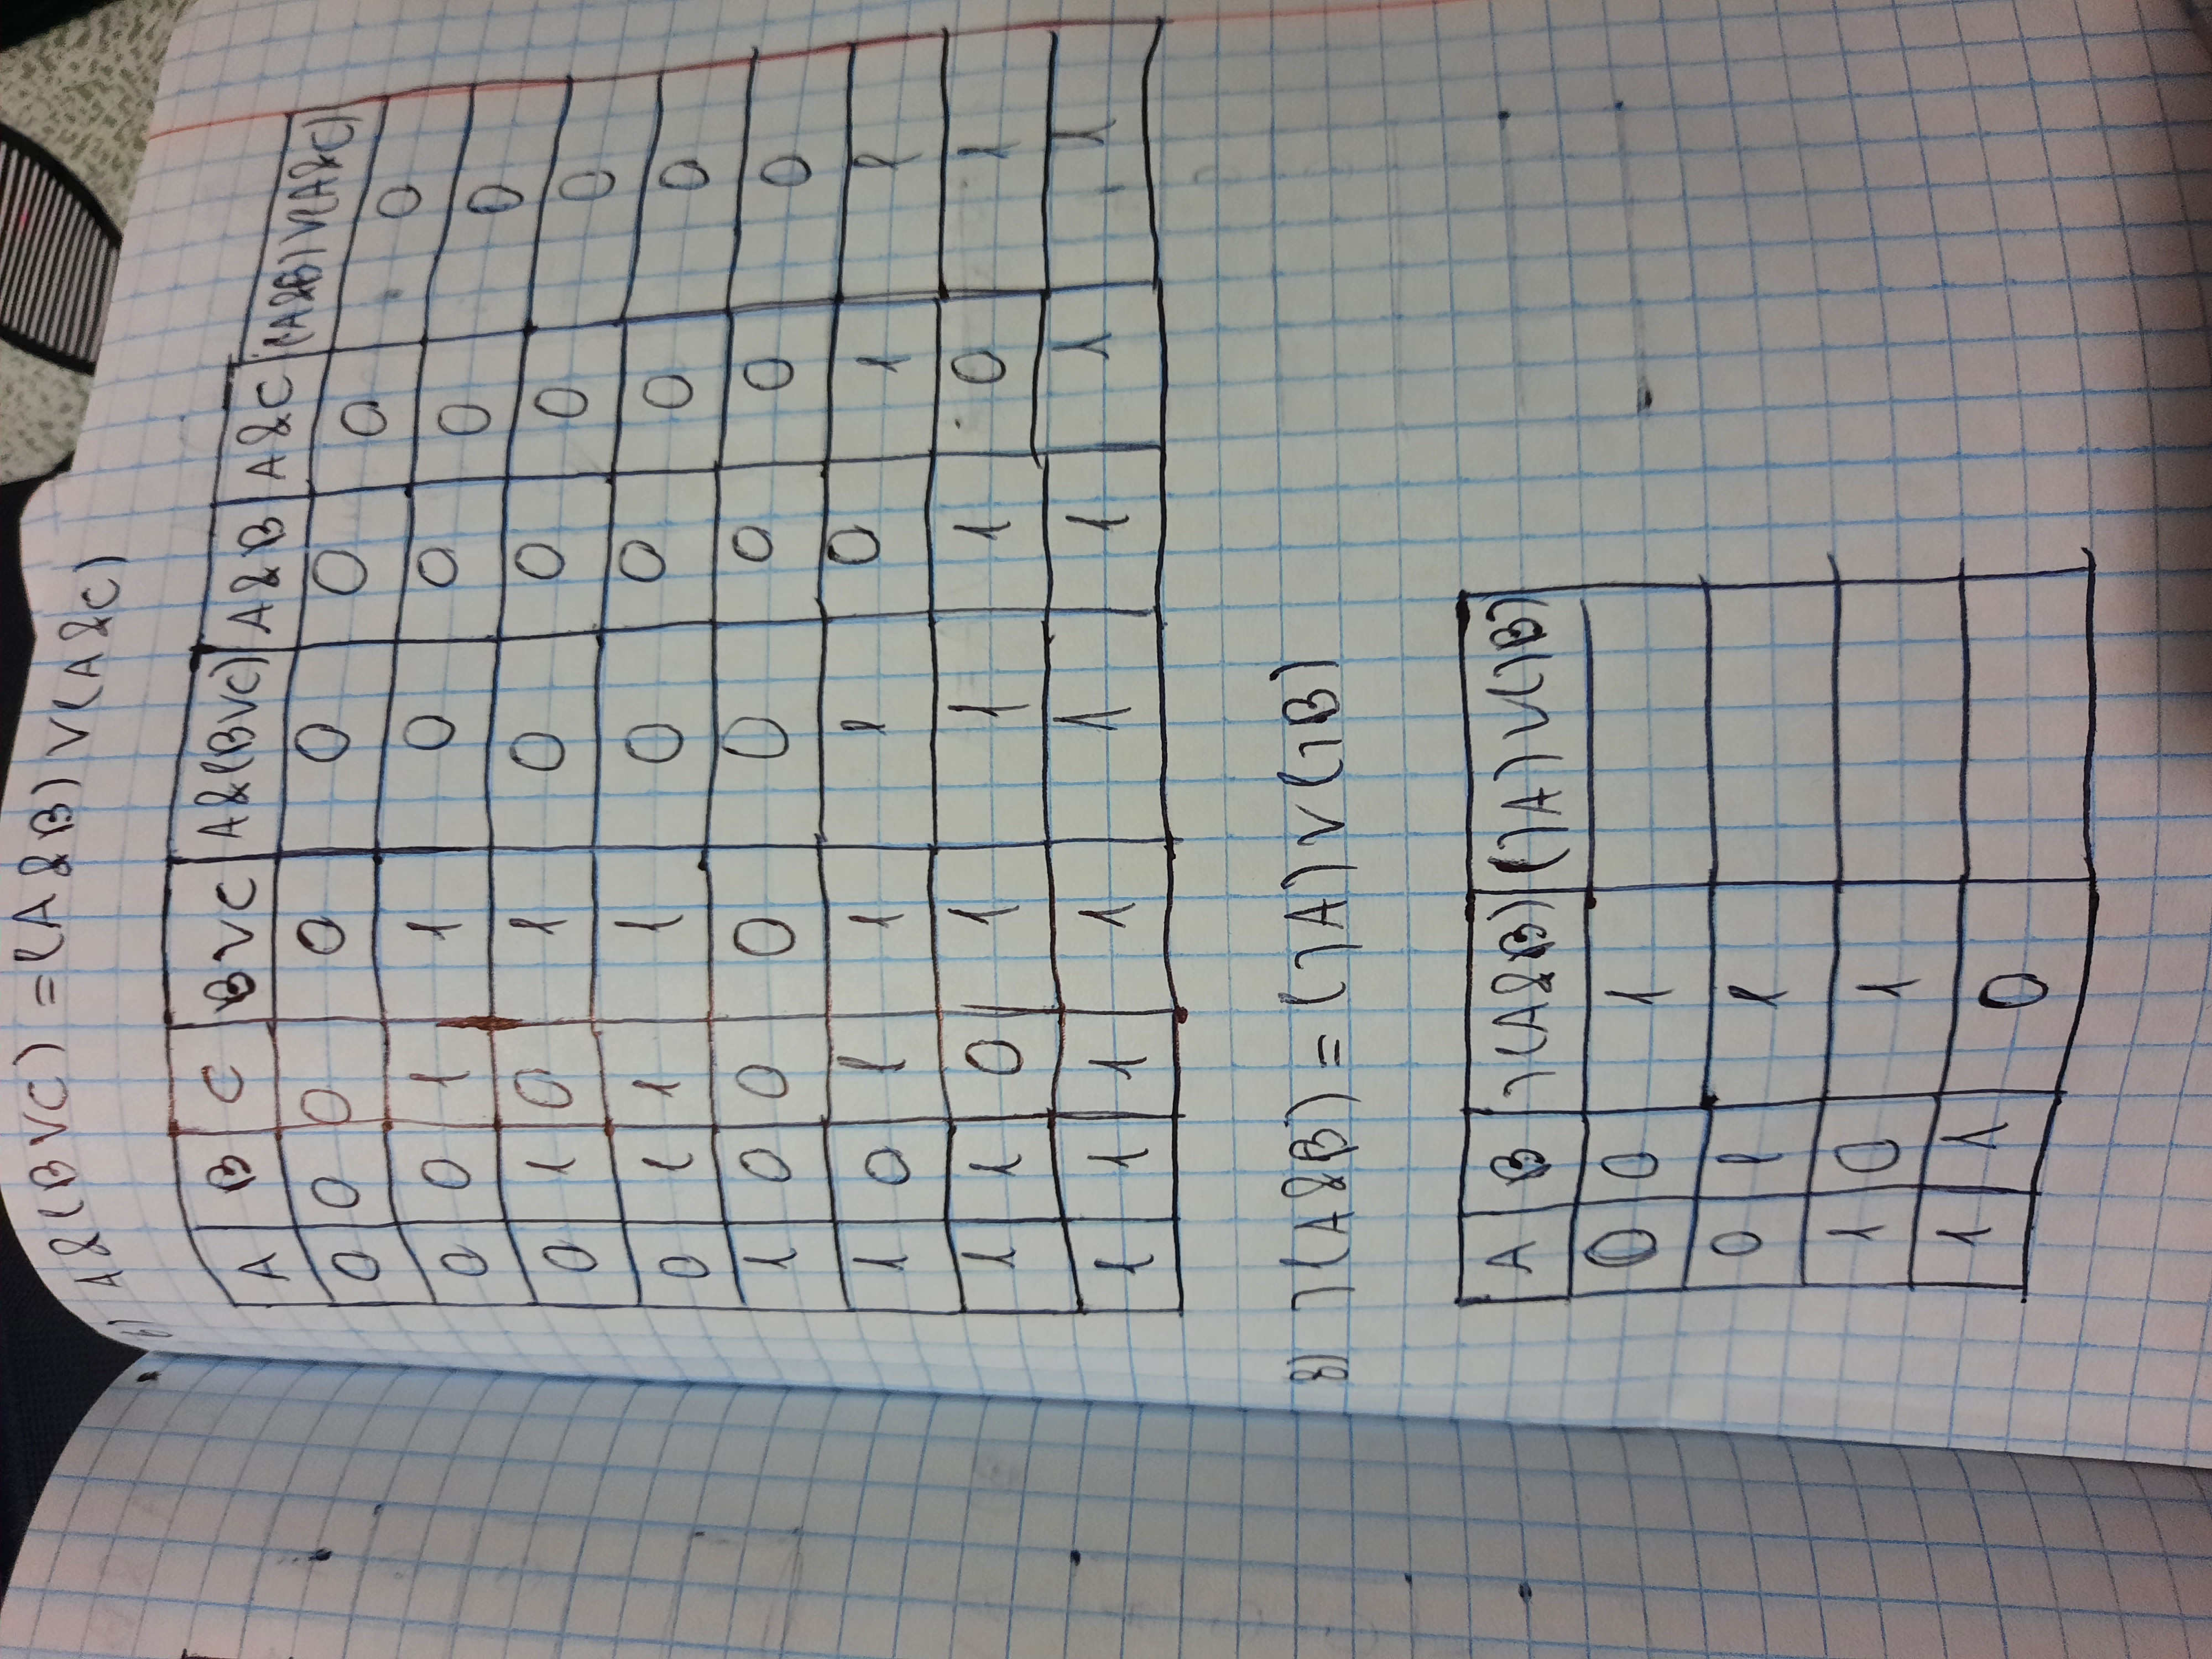 б) A&(B∨C) = (A&B)∨(A&C)
A B C B∨C A&(B∨C) A&B A&C (A&B)∨(A&C)
0 0 0 0 0 0 0 0
0 0 1 1 0 0 0 0
0 1 0 1 0 0 0 0
0 1 1 1 0 0 0 0
1 0 0 0 0 0 0 0
1 0 1 1 1 0 1 1
1 1 0 1 1 1 0 1
1 1 1 1 1 1 1 1
в) ¬(A&B) = (¬A)∨(¬B)
A B ¬(A&B) (¬A)∨(¬B)
0 0 1
0 1 1
1 0 1
1 1 0